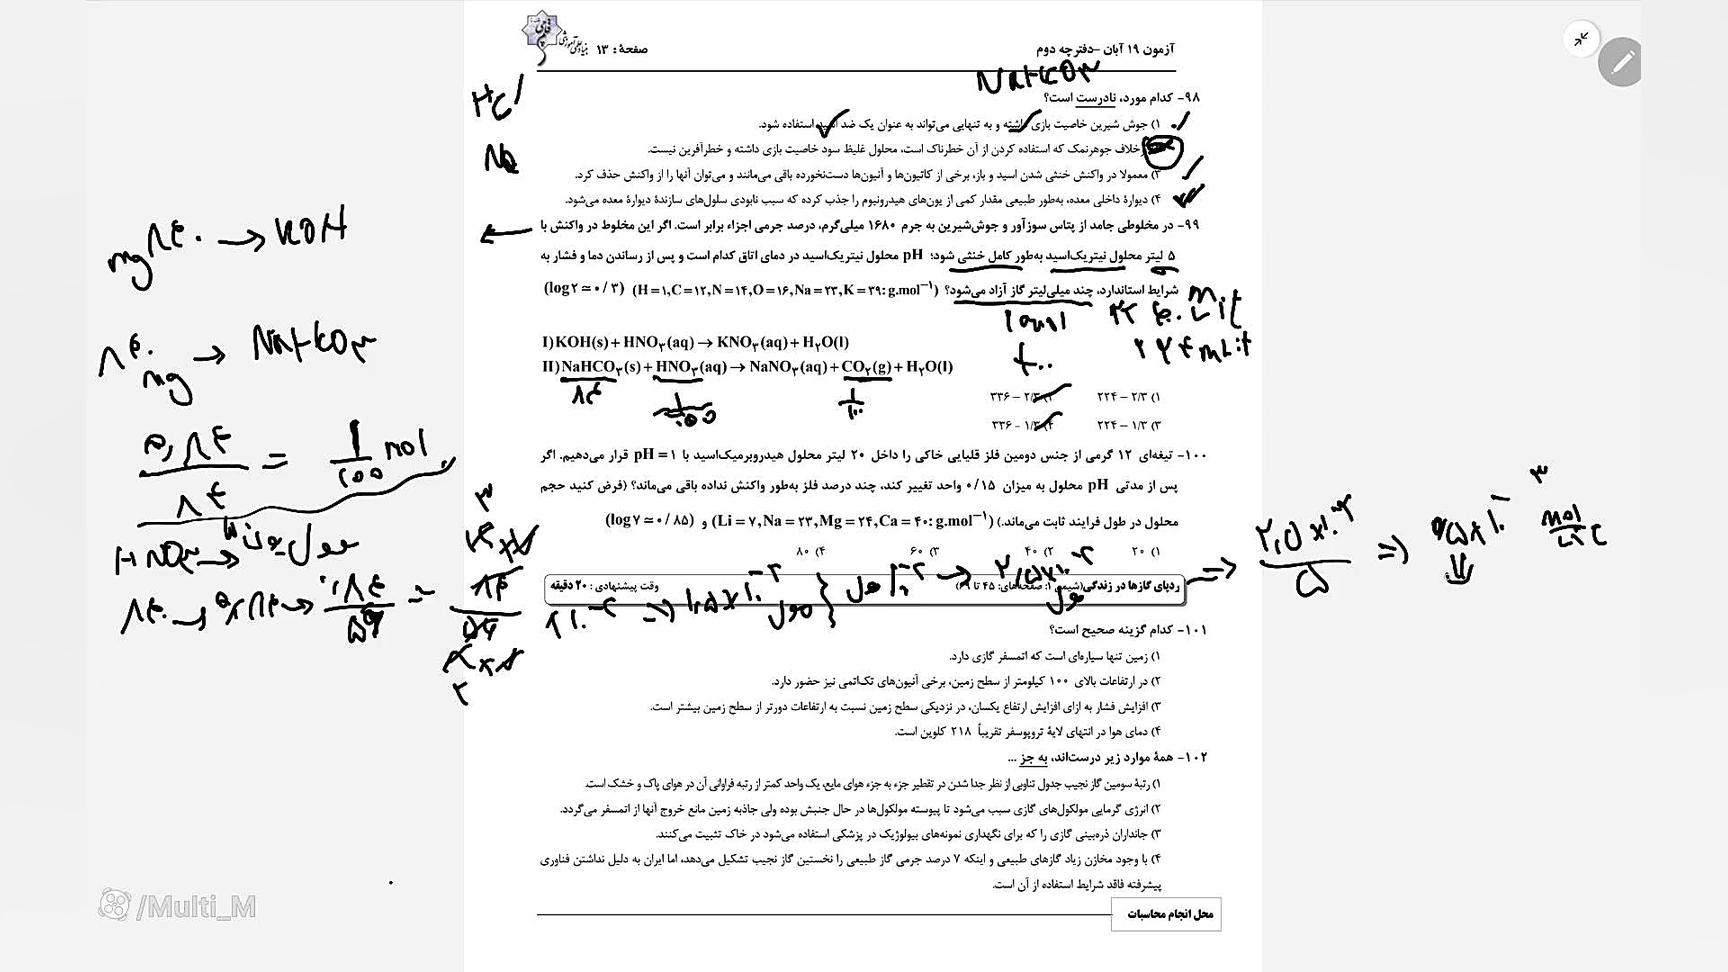 آزمون ۱۹ آبان -دفترچه دوم
صفحهٔ: ۱۳
بنیاد علمی آموزشی قلم‌چی
NaHCO۳
HCl
Na
۹۸- کدام مورد، نادرست است؟
۱) جوش شیرین خاصیت بازی داشته و به تنهایی می‌تواند به عنوان یک ضد اسید استفاده شود.
برخلاف جوهرنمک که استفاده کردن از آن خطرناک است، محلول غلیظ سود خاصیت بازی داشته و خطرآفرین نیست.
۳) معمولا در واکنش خنثی شدن اسید و باز، برخی از کاتیون‌ها و آنیون‌ها دست‌نخورده باقی می‌مانند و می‌توان آنها را از واکنش حذف کرد.
۴) دیوارهٔ داخلی معده، به‌طور طبیعی مقدار کمی از یون‌های هیدرونیوم را جذب کرده که سبب نابودی سلول‌های سازندهٔ دیوارهٔ معده می‌شود.
۹۹- در مخلوطی جامد از پتاس سوزآور و جوش‌شیرین به جرم ۱۶۸۰ میلی‌گرم، درصد جرمی اجزاء برابر است. اگر این مخلوط در واکنش با
۵ لیتر محلول نیتریک‌اسید به‌طور کامل خنثی شود؛ pH محلول نیتریک‌اسید در دمای اتاق کدام است و پس از رساندن دما و فشار به
شرایط استاندارد، چند میلی‌لیتر گاز آزاد می‌شود؟ (H=۱,C=۱۲,N=۱۴,O=۱۶,Na=۲۳,K=۳۹:g.mol⁻¹) (log۲≃۰/۳)
I) KOH(s)+HNO۳(aq)→KNO۳(aq)+H۲O(l)
II) NaHCO۳(s)+HNO۳(aq)→NaNO۳(aq)+CO۲(g)+H۲O(l)
۱) ۲/۳ – ۲۲۴
۲) ۲/۳ – ۳۳۶
۳) ۱/۳ – ۲۲۴
۴) ۱/۳ - ۳۳۶
mg ۸۴۰ → KOH
۸۴۰ mg → NaHCO۳
۰,۸۴ / ۸۴ = ۱/۱۰۰ mol
۸۴
۱/۱۰۰
۲۲۴ mLit
۱۰۰- تیغه‌ای ۱۲ گرمی از جنس دومین فلز قلیایی خاکی را داخل ۲۰ لیتر محلول هیدروبرمیک‌اسید با pH=۱ قرار می‌دهیم. اگر
پس از مدتی pH محلول به میزان ۰/۱۵ واحد تغییر کند، چند درصد فلز به‌طور واکنش نداده باقی می‌ماند؟ (فرض کنید حجم
محلول در طول فرایند ثابت می‌ماند.) (Li=۷,Na=۲۳,Mg=۲۴,Ca=۴۰:g.mol⁻¹) و (log۷≃۰/۸۵)
۱) ۲۰
۲) ۴۰
۳) ۶۰
۴) ۸۰
ردپای گازها در زندگی(شیمی ۱: صفحه‌های: ۴۵ تا ۶۹)
وقت پیشنهادی: ۲۰ دقیقه
۱۰۱- کدام گزینه صحیح است؟
۱) زمین تنها سیاره‌ای است که اتمسفر گازی دارد.
۲) در ارتفاعات بالای ۱۰۰ کیلومتر از سطح زمین، برخی آنیون‌های تک‌اتمی نیز حضور دارد.
۳) افزایش فشار به ازای افزایش ارتفاع یکسان، در نزدیکی سطح زمین نسبت به ارتفاعات دورتر از سطح زمین بیشتر است.
۴) دمای هوا در انتهای لایهٔ تروپوسفر تقریباً ۲۱۸ کلوین است.
۱۰۲- همهٔ موارد زیر درست‌اند، به جز ...
۱) رتبهٔ سومین گاز نجیب جدول تناوبی از نظر جدا شدن در تقطیر جزء به جزء هوای مایع، یک واحد کمتر از رتبه فراوانی آن در هوای پاک و خشک است.
۲) انرژی گرمایی مولکول‌های گازی سبب می‌شود تا پیوسته مولکول‌ها در حال جنبش بوده ولی جاذبه زمین مانع خروج آنها از اتمسفر می‌گردد.
۳) جانداران ذره‌بینی گازی را که برای نگهداری نمونه‌های بیولوژیک در پزشکی استفاده می‌شود در خاک تثبیت می‌کنند.
۴) با وجود مخازن زیاد گازهای طبیعی و اینکه ۷ درصد جرمی گاز طبیعی را نخستین گاز نجیب تشکیل می‌دهد، اما ایران به دلیل نداشتن فناوری
پیشرفته فاقد شرایط استفاده از آن است.
محل انجام محاسبات
/Multi_M